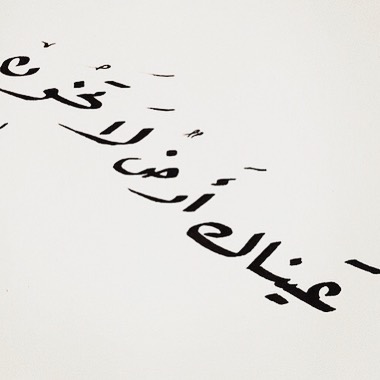 عَيناكِ أَرضٌ لَا تَخُونْ